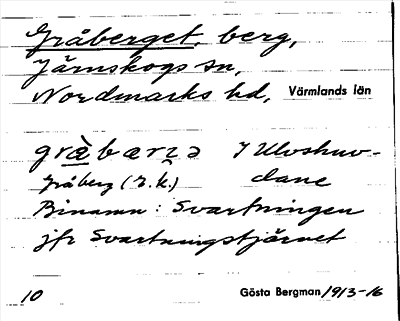 Gråberget, berg,
Järnskogs sn,
Nordmarks hd, Värmlands län
grὰ̠bærzə I Ulvshuv-
Gråberg (T.k.) dane
Binamn: Svartningen
jfr Svartningstjärnet
10 Gösta Bergman 1913-16